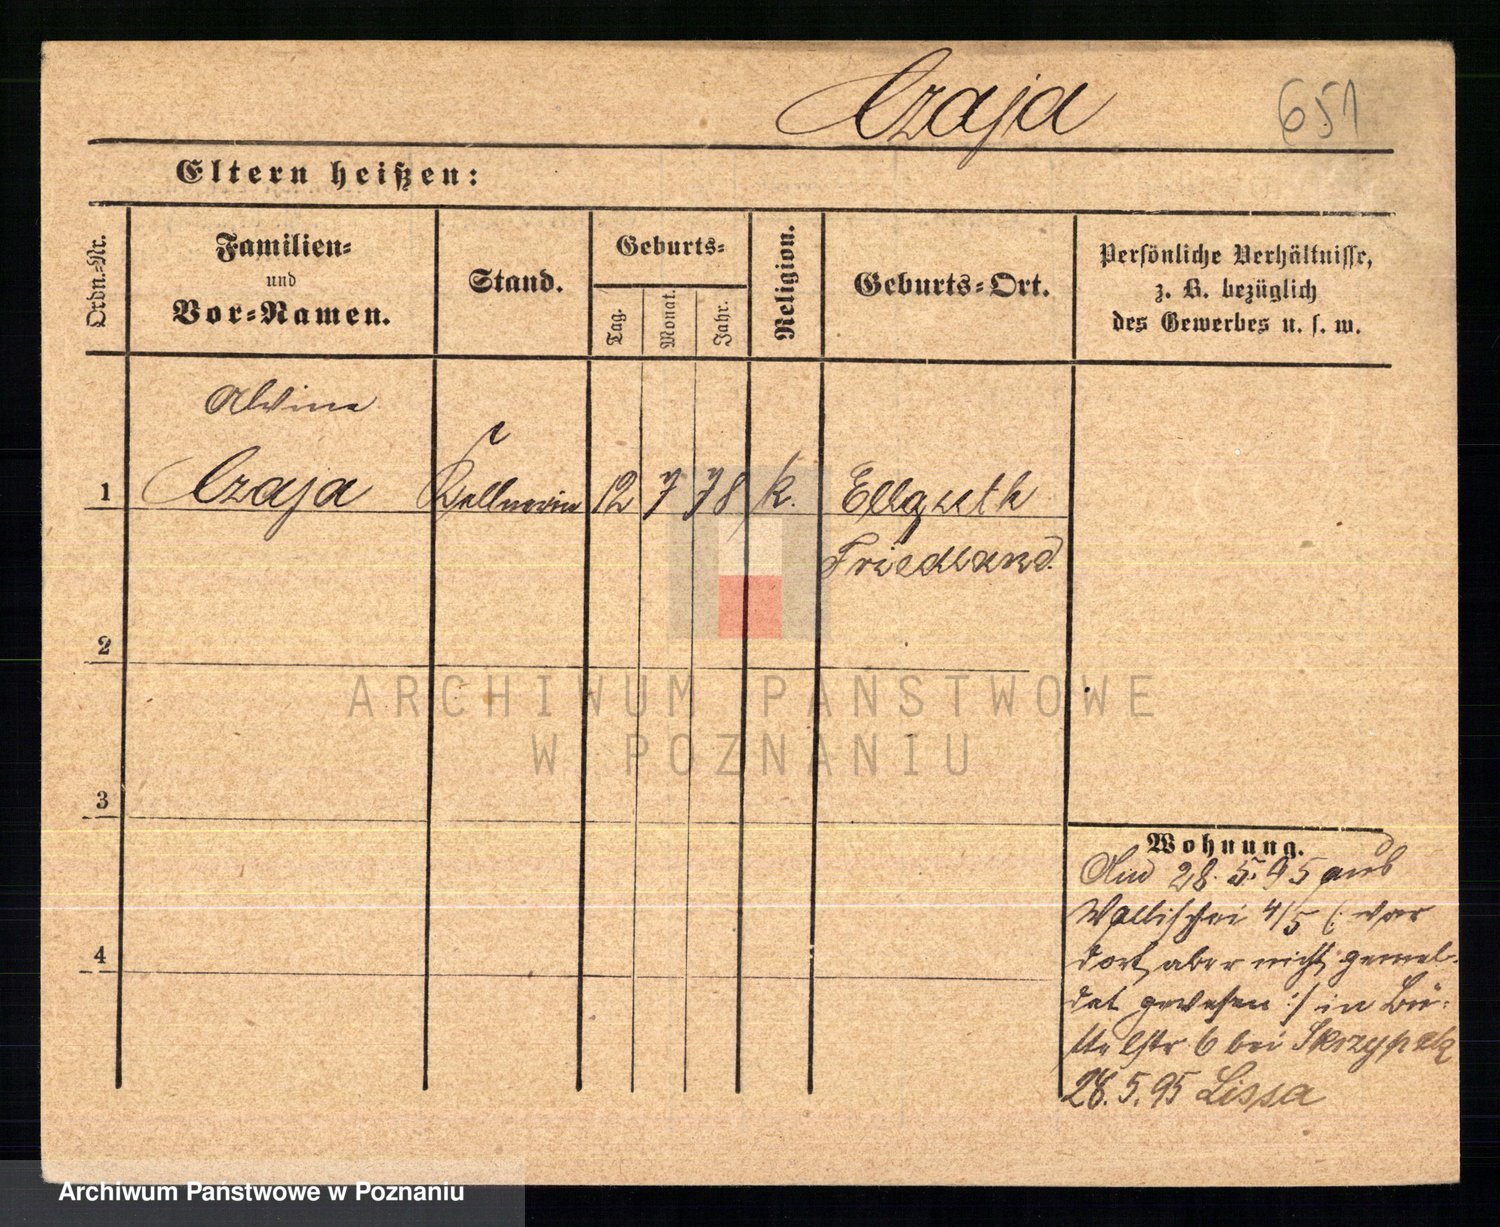 Czaja
651
Eltern heißen:
Ordn.-Nr.
Familien-
und
Vor-Namen.
Stand.
Geburts-
Tag.
Monat.
Jahr.
Religion.
Geburts-Ort.
Persönliche Verhältnisse,
z. B. bezüglich
des Gewerbes u. s. w.
Alvine
1 Czaja Kellnerin 12 7 78 k. Ellguth
Friedland.
2
3
4
Wohnung.
28. 5. 95 aus
Wallischei 4/5 (: war
dort aber nicht gemel-
det gewesen :/ in Büt-
telstr 6 bei Skrzypek
28. 5. 95 Lissa
ARCHIWUM PAŃSTWOWE
W POZNANIU
Archiwum Państwowe w Poznaniu